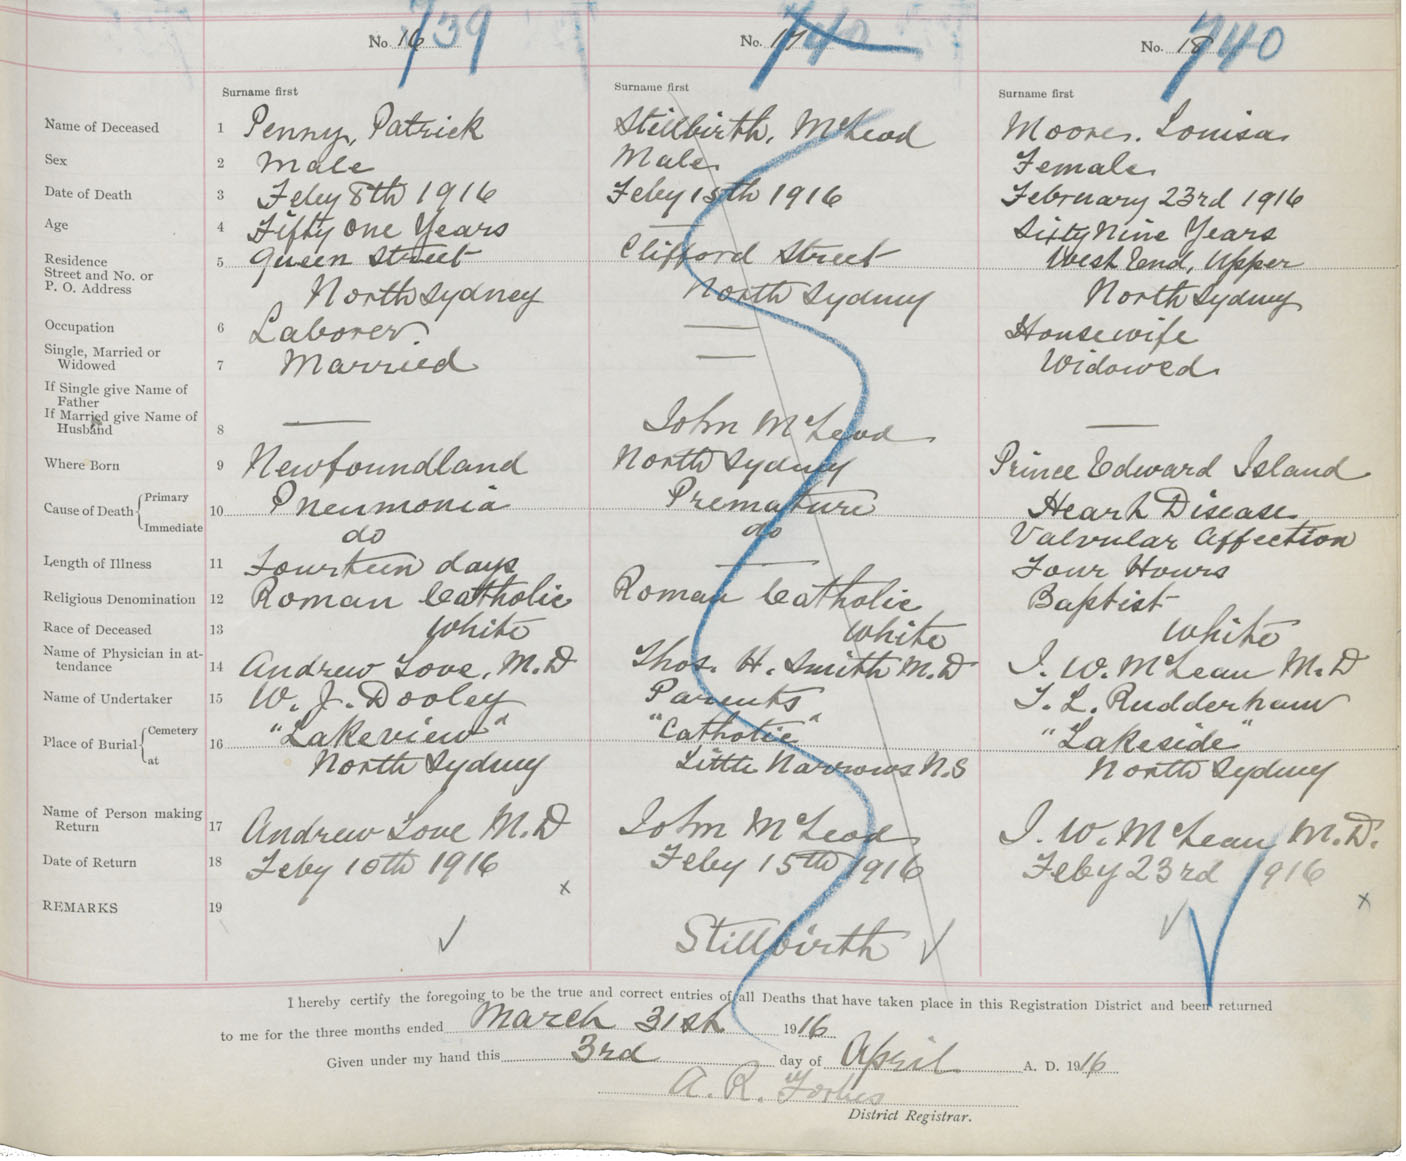 739 740 740
No. 16 No. 17 No. 18
Surname first Surname first Surname first
Name of Deceased 1 Penny, Patrick Stillbirth, McLeod Moore, Louisa
Sex 2 Male Male Female
Date of Death 3 Feby 8th 1916 Feby 15th 1916 February 23rd 1916
Age 4 Fifty One Years — Sixty Nine Years
Residence 5 Queen Street Clifford Street West End, Upper
Street and No. or
P. O. Address North Sydney North Sydney North Sydney
Occupation 6 Laborer — Housewife
Single, Married or
Widowed 7 Married — Widowed
If Single give Name of
Father
If Married give Name of
Husband 8 — John McLeod —
Where Born 9 Newfoundland North Sydney Prince Edward Island
Cause of Death { Primary 10 Pneumonia Premature Heart Disease
Immediate do do Valvular Affection
Length of Illness 11 Fourteen days — Four Hours
Religious Denomination 12 Roman Catholic Roman Catholic Baptist
Race of Deceased 13 White White White
Name of Physician in at-
tendance 14 Andrew Love, M.D Thos. H. Smith M.D J. W. McLean M.D
Name of Undertaker 15 W. J. Dooley Parents F. L. Rudderham
Place of Burial { Cemetery 16 "Lakeview" "Catholic" "Lakeside"
at North Sydney Little Narrows N.S North Sydney
Name of Person making
Return 17 Andrew Love M.D John McLeod J. W. McLean M.D.
Date of Return 18 Feby 10th 1916 Feby 15th 1916 Feby 23rd 1916
x x
REMARKS 19
✓ Stillbirth ✓ ✓
I hereby certify the foregoing to be the true and correct entries of all Deaths that have taken place in this Registration District and been returned
to me for the three months ended March 31st 1916
Given under my hand this 3rd day of April A. D. 1916
A. R. Forbes
District Registrar.